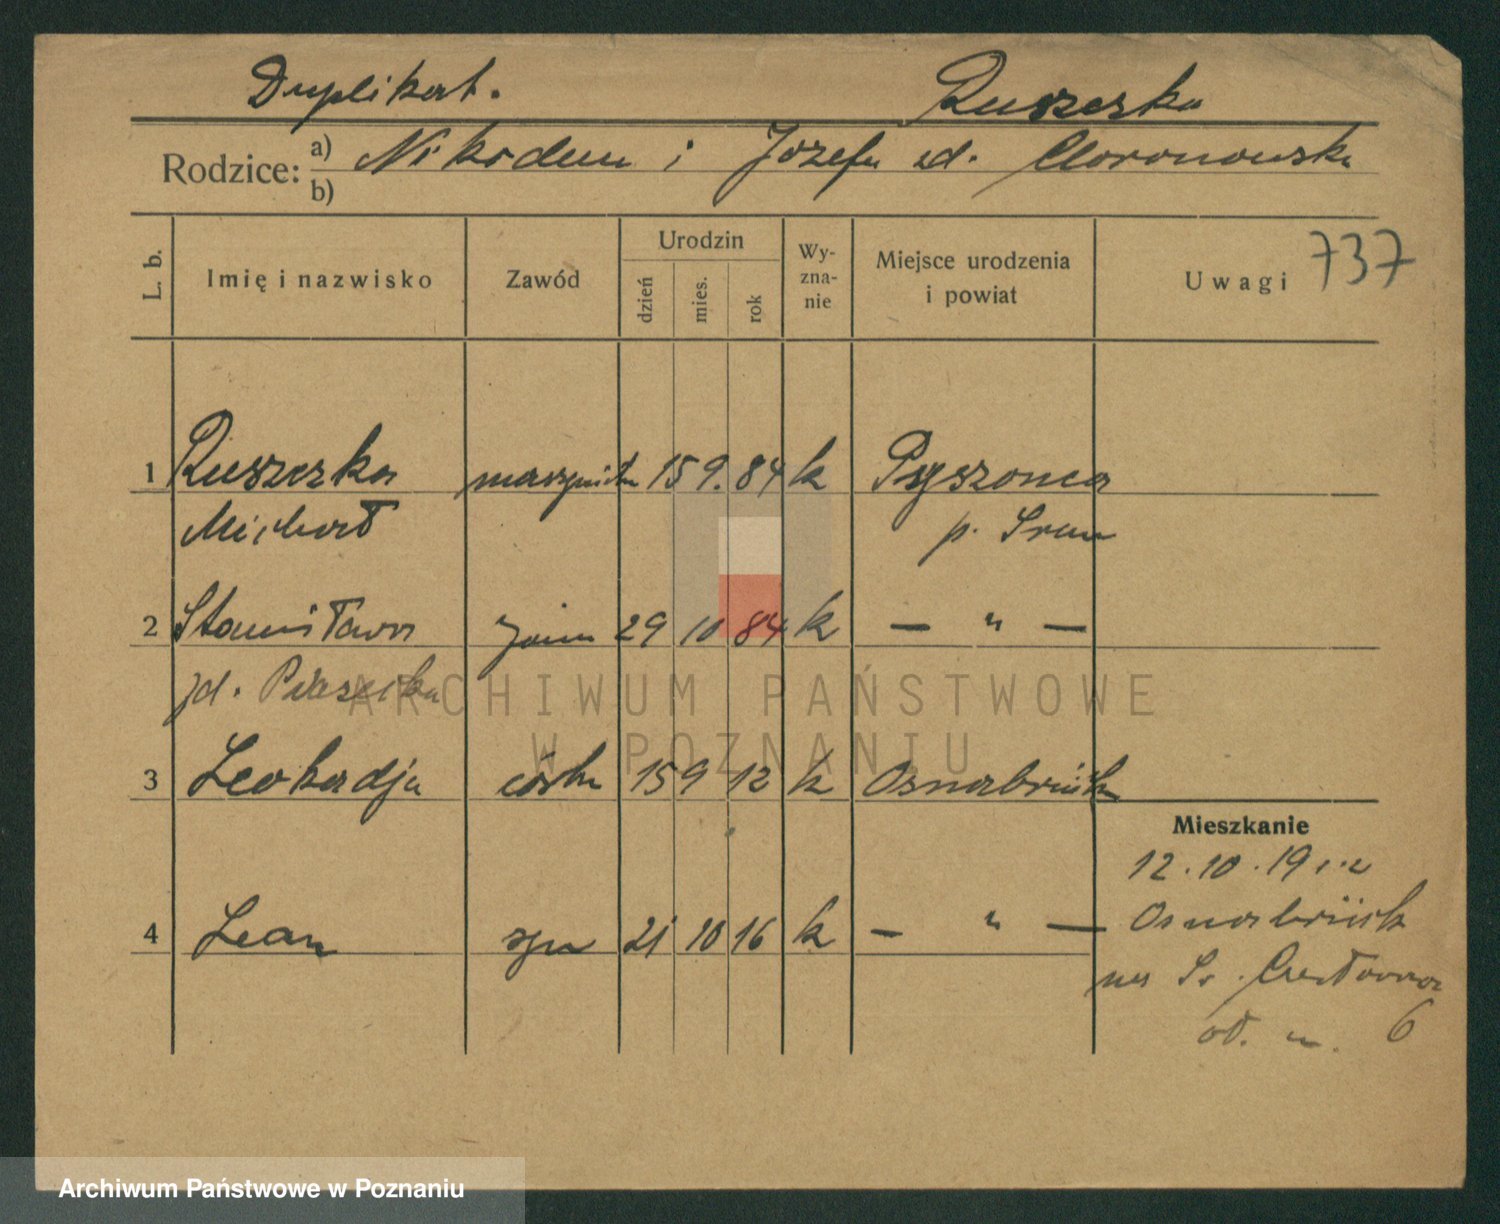 Duplikat. Ruszczka
Rodzice: a) Nikodem i Józefa zd.
b)
737
L. b. Imię i nazwisko Zawód Urodzin dzień mies. rok Wy-zna-nie Miejsce urodzenia i powiat Uwagi
1 Ruszczka 15 9. 84 k
Michał p. Śrem
2 Stanisława żona 29 10 84 k — " —
zd.
ARCHIWUM PAŃSTWOWE
W POZNANIU
3 Leokadja córka 15 9 12 k Osnabrück
Mieszkanie
12.10.19
4 Leon syn 21 10 16 k — " — Osnabrück
na Św.
6
Archiwum Państwowe w Poznaniu